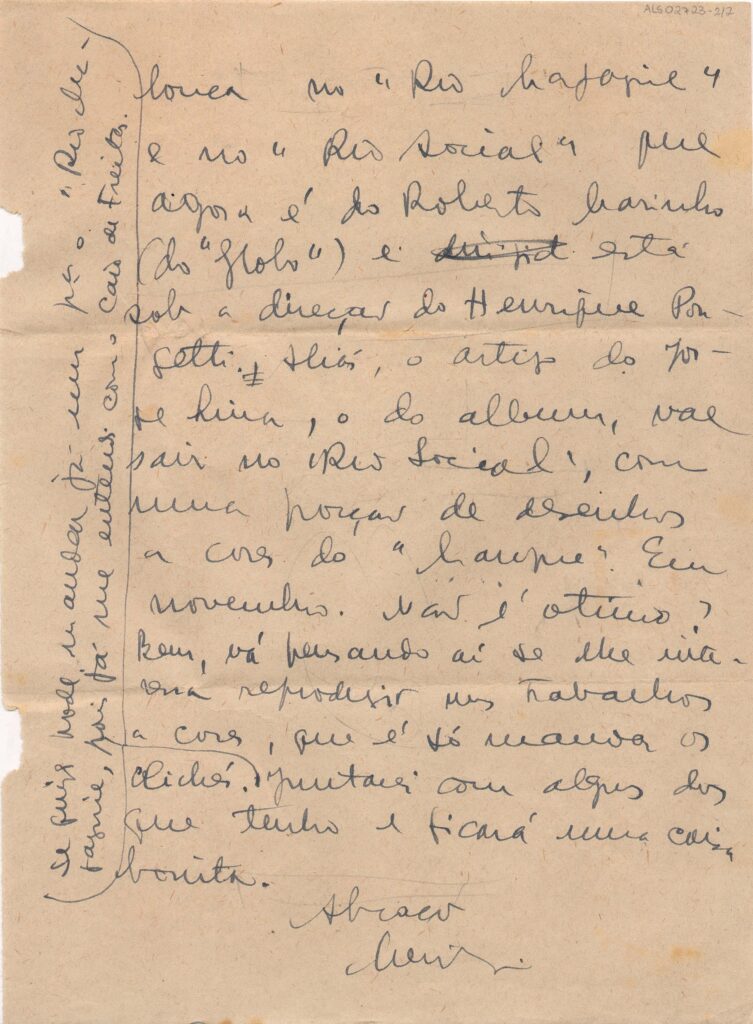 ALS02723-2/2
louca no "Rio Magazine"
e no "Rio Social" que
agora é do Roberto Marinho
(do "Globo") e está
sob a direção do Henrique Pon-
getti. Aliás, o artigo do Jor-
ge Lima, o do album, vae
sair no "Rio Social", com
uma porção de desenhos
a cores do "Mangue". Em
novembro. Não é otimo?
Bem, vá pensando aí se lhe inte-
ressa reproduzir uns trabalhos
a cores, que é só mandar os
clichés. Juntarei com algus dos
que tenho e ficará uma coisa
bonita.
Abraço
Se quizer pode mandar já um pa o "Rio Ma-
gazine", pois já me entendi com o Caio de Freitas.